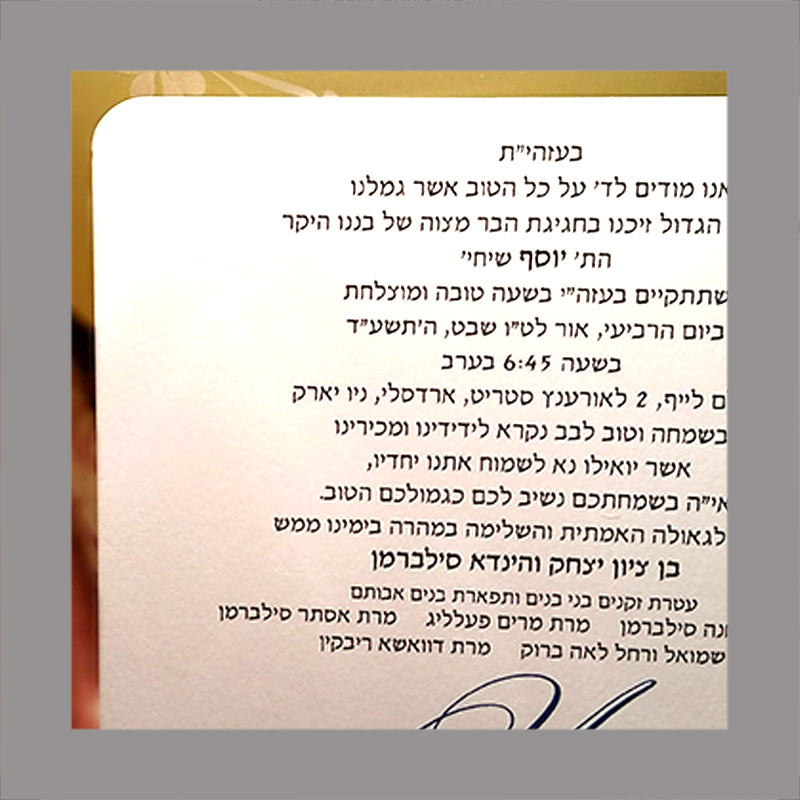 בעזהי"ת
אנו מודים לד' על כל הטוב אשר גמלנו
הגדול זיכנו בחגיגת הבר מצוה של בננו היקר
הת' יוסף שיחי'
שתתקיים בעזה"י בשעה טובה ומוצלחת
ביום הרביעי, אור לט"ו שבט, ה'תשע"ד
בשעה 6:45 בערב
לייף, 2 לאורענץ סטריט, ארדסלי, ניו יארק
בשמחה וטוב לבב נקרא לידידינו ומכירינו
אשר יואילו נא לשמוח אתנו יחדיו,
אי"ה בשמחתכם נשיב לכם כגמולכם הטוב.
לגאולה האמתית והשלימה במהרה בימינו ממש
בן ציון יצחק והינדא סילברמן
עטרת זקנים בני בנים ותפארת בנים אבותם
סילברמן מרת מרים פעלליג מרת אסתר סילברמן
שמואל ורחל לאה ברוק מרת דוואשא ריבקין